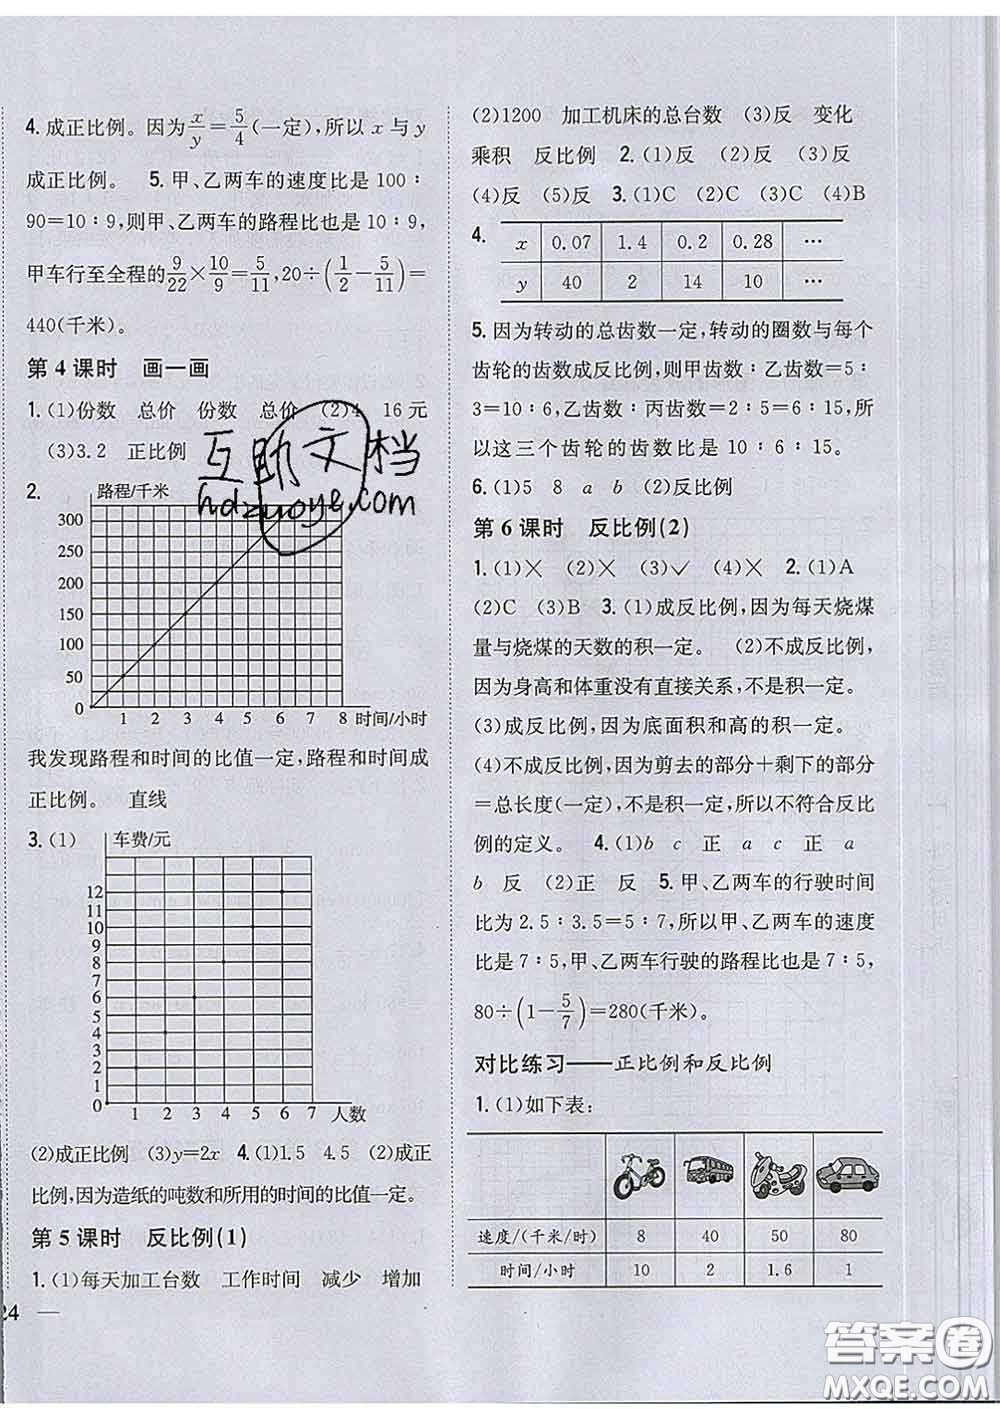 4. 成正比例。因为x/y=5/4(一定),所以 x 与 y
成正比例。 5. 甲、乙两车的速度比是 100∶
90=10∶9,则甲、乙两车的路程比也是 10∶9,
甲车行至全程的9/22×10/9=5/11,20÷(1/2-5/11)=
440(千米)。
第 4 课时 画一画
1. (1)份数 总价 份数 总价 (2)4 16 元
(3)3.2 正比例
2.
路程/千米
300
250
200
150
100
50
0
1 2 3 4 5 6 7 8 时间/小时
我发现路程和时间的比值一定,路程和时间成
正比例。 直线
3. (1)
车费/元
12
11
10
9
8
7
6
5
4
3
2
1
0
1 2 3 4 5 6 7 人数
(2)成正比例 (3)y=2x 4. (1)1.5 4.5 (2)成正
比例,因为造纸的吨数和所用的时间的比值一定。
第 5 课时 反比例(1)
1. (1)每天加工台数 工作时间 减少 增加
24 —
(2)1200 加工机床的总台数 (3)反 变化
乘积 反比例 2. (1)反 (2)反 (3)反
(4)反 (5)反 3. (1)C (2)C (3)C (4)B
4.
x 0.07 1.4 0.2 0.28 …
y 40 2 14 10 …
5. 因为转动的总齿数一定,转动的圈数与每个
齿轮的齿数成反比例,则甲齿数∶乙齿数=5∶
3=10∶6,乙齿数∶丙齿数=2∶5=6∶15,所
以这三个齿轮的齿数比是 10∶6∶15。
6. (1)5 8 a b (2)反比例
第 6 课时 反比例(2)
1. (1)× (2)× (3)✓ (4)× 2. (1)A
(2)C (3)B 3. (1)成反比例,因为每天烧煤
量与烧煤的天数的积一定。 (2)不成反比例,
因为身高和体重没有直接关系,不是积一定。
(3)成反比例,因为底面积和高的积一定。
(4)不成反比例,因为剪去的部分+剩下的部分
=总长度(一定),不是积一定,所以不符合反比
例的定义。 4. (1)b c 正 a c 正 a
b 反 (2)正 反 5. 甲、乙两车的行驶时间
比为 2.5∶3.5=5∶7,所以甲、乙两车的速度
比是 7∶5,甲、乙两车行驶的路程比也是 7∶5,
80÷(1-5/7)=280(千米)。
对比练习——正比例和反比例
1. (1)如下表:
速度/(千米/时) 8 40 50 80
时间/小时 10 2 1.6 1
互助文档
hdzuoye.com
答案圈
MXQE.COM